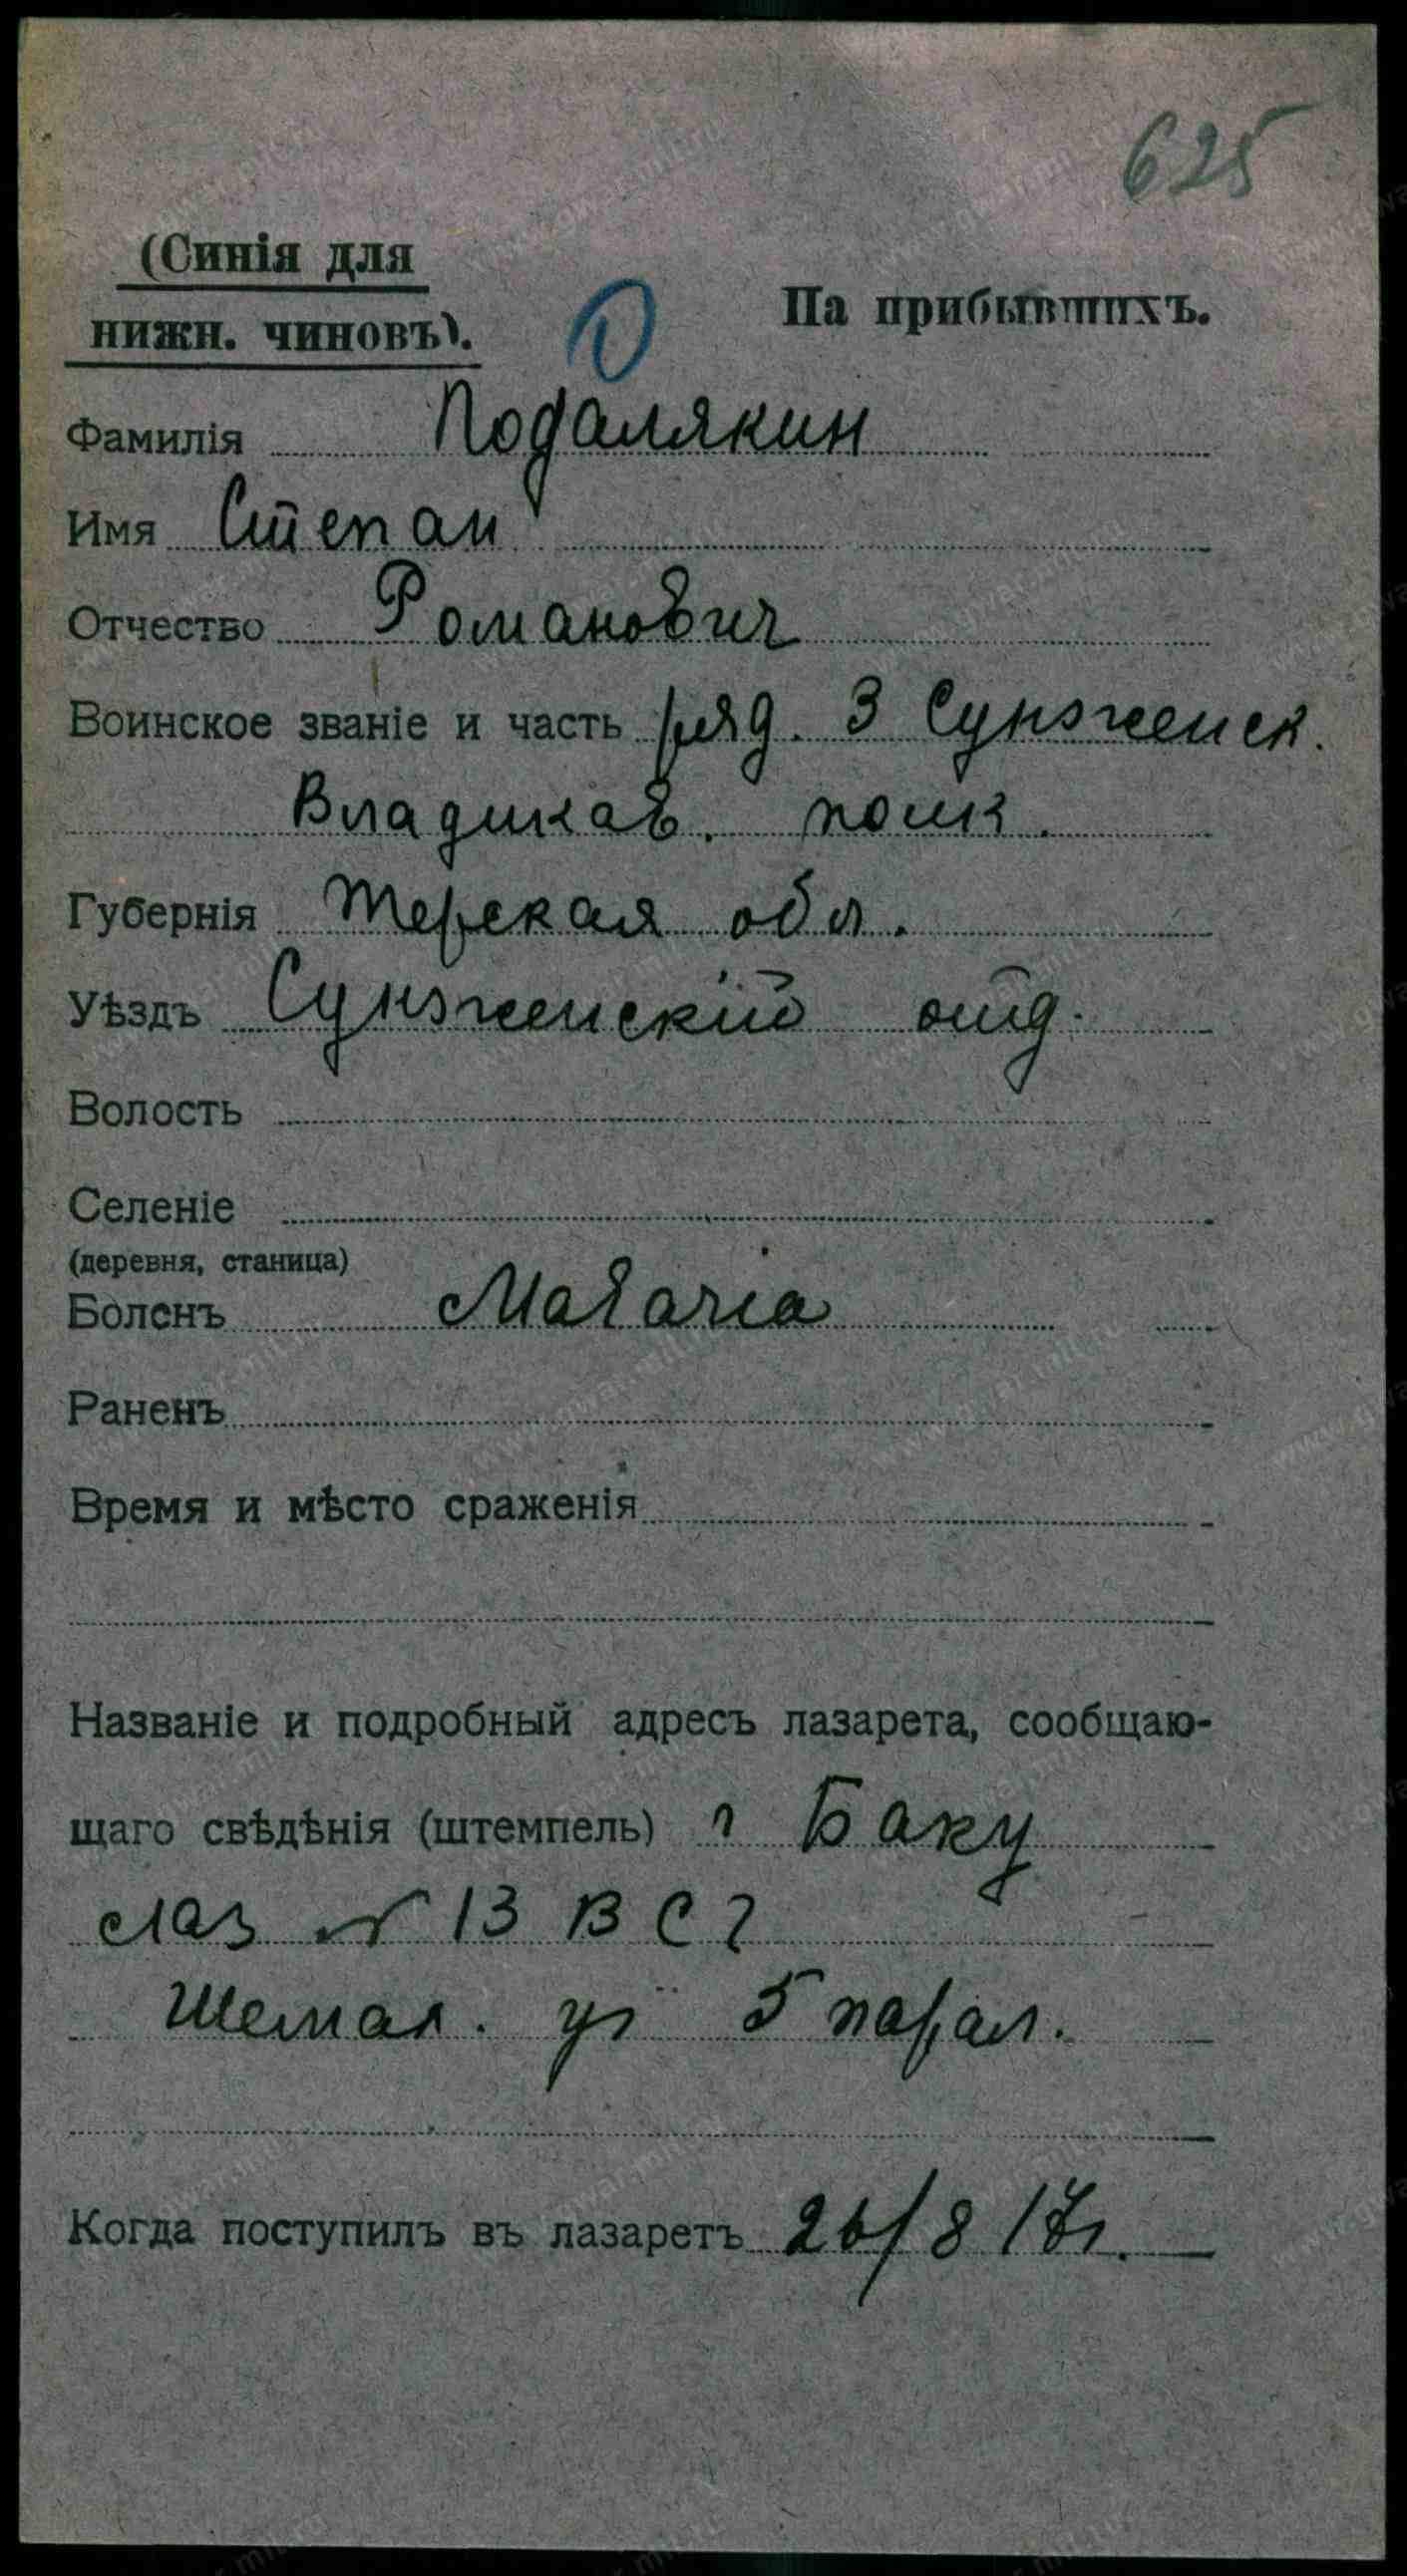 625
(Синія для
нижн. чиновъ).
На прибывшихъ.
Фамилія Подалякин
Имя Степан
Отчество Романович
Воинское званіе и часть ряд. 3 Сунженск.
Владикав. полк.
Губернія Терская обл.
Уѣздъ Сунженскій отд.
Волость
Селеніе
(деревня, станица)
Боленъ Malaria
Раненъ
Время и мѣсто сраженія
Названіе и подробный адресъ лазарета, сообщаю-
щаго свѣдѣнія (штемпель) г Баку
лаз № 13 В С Г
Шемах. ул 5 парал.
Когда поступилъ въ лазаретъ 26/8 17г.